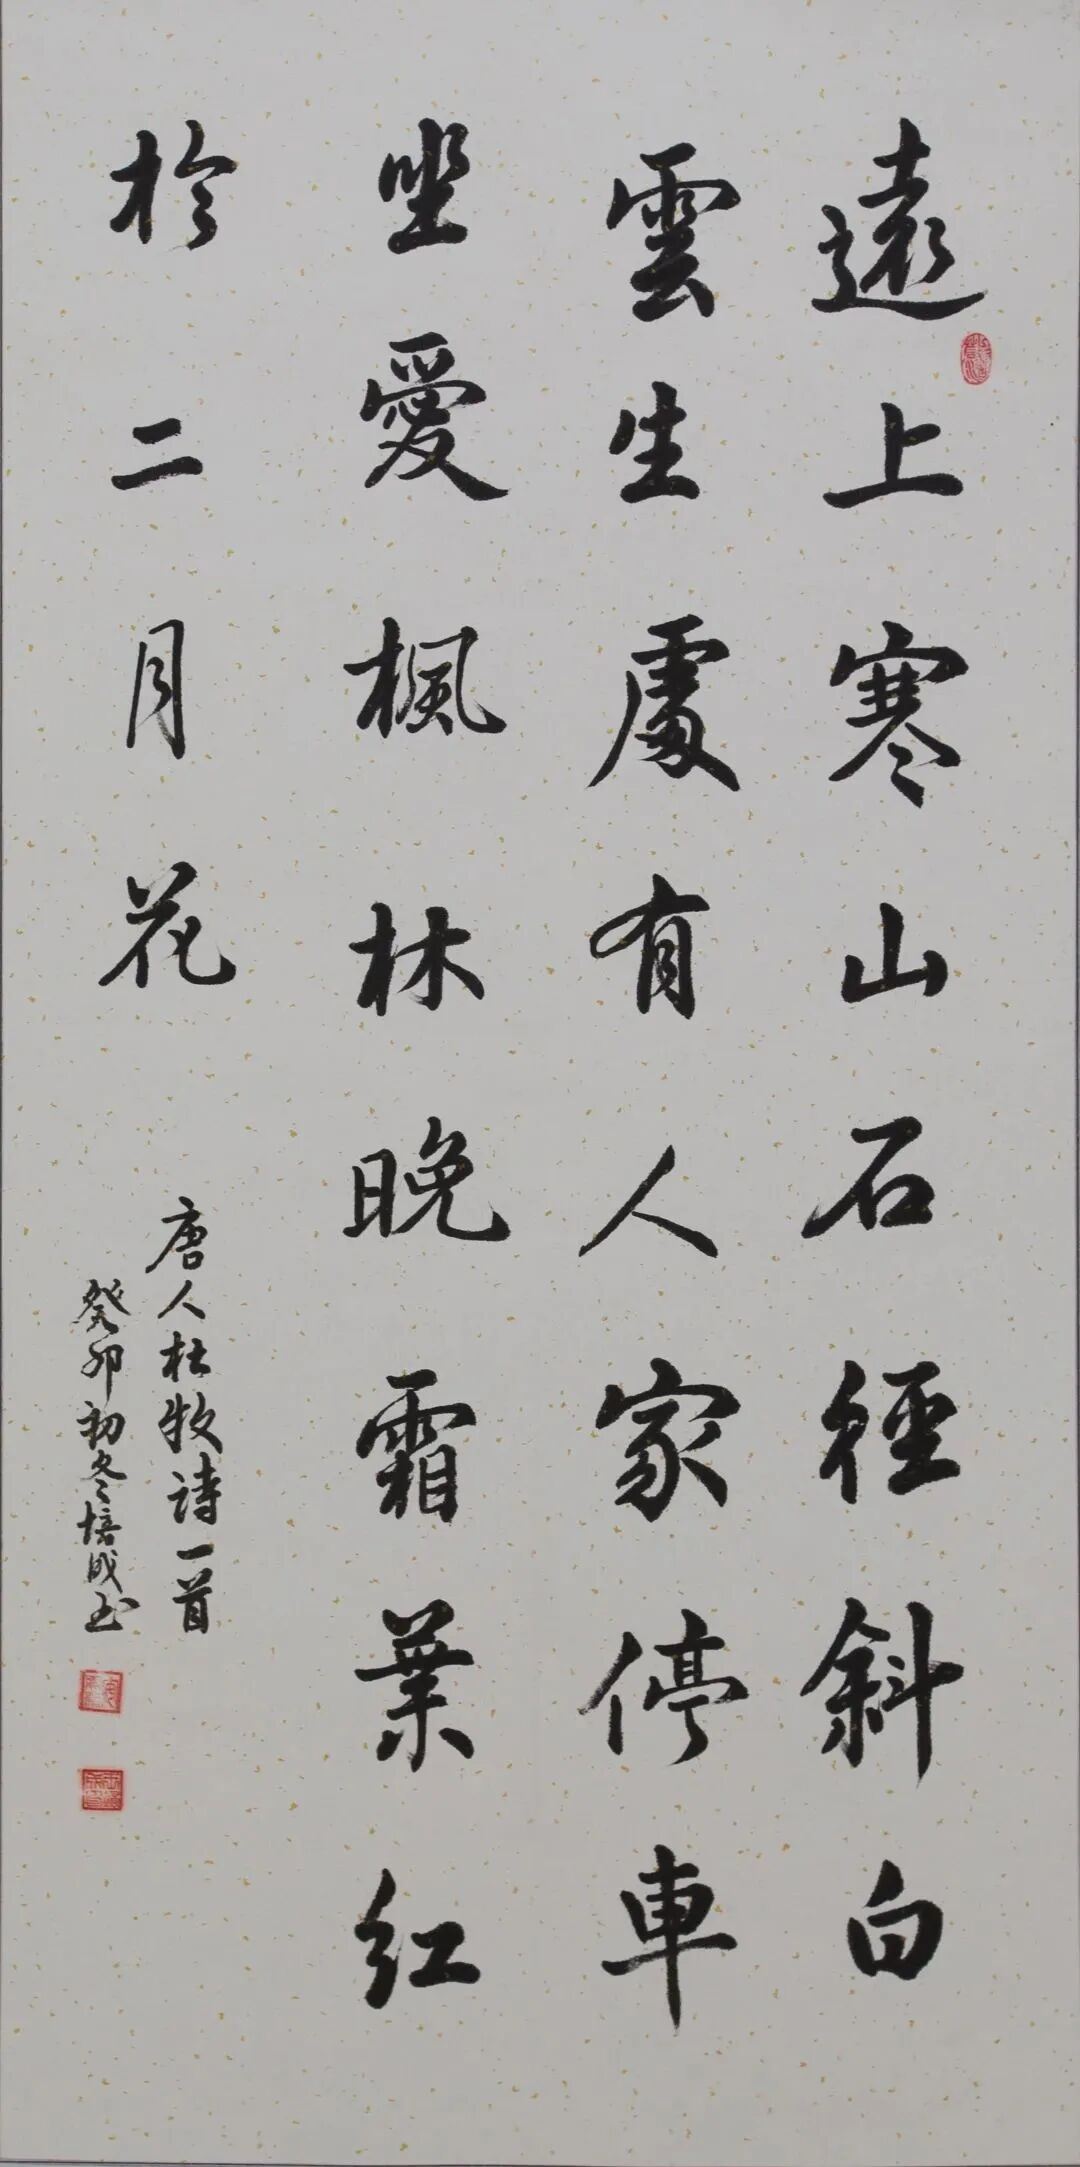 遠上寒山石徑斜白
雲生處有人家停車
坐愛楓林晚霜葉红
於二月花
唐人杜牧詩一首
癸卯初冬培成书